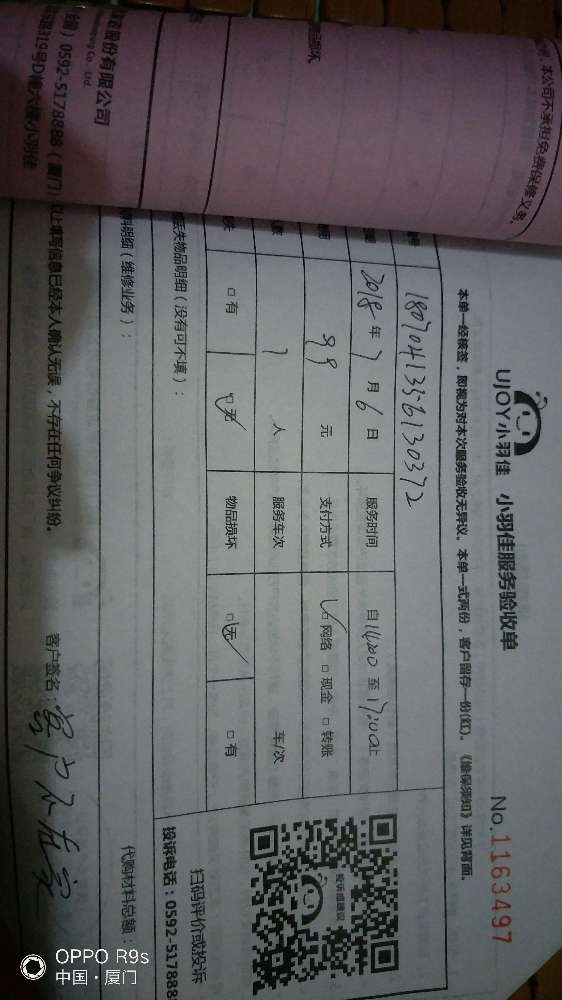 UJOY小羽佳 小羽佳服务验收单
No.1163497
本单一经核签，即视为对本次服务验收无异议。本单一式两份，客户留存一份(红)。《维保须知》详见背面。
1807041356130372
2018年7月6日 服务时间 自14:00至17:00止
99元 支付方式 ☑网络 □现金 □转账
1人 服务车次 车/次
□有 ☑无 物品损坏 ☑无 □有
丢失物品明细（没有可不填）：
料明细（维修业务）：
代购材料总额：
以上填写信息已经本人确认无误，不存在任何争议纠纷。
客户签名：客户不在家
投诉或建议
扫码评价或投诉
投诉电话：0592-5178888
，本公司不承担免费保修义务。
股份有限公司
Co., Ltd.
0592-5178888（厦门）
319号D幢六楼小羽佳
OPPO R9s
中国·厦门